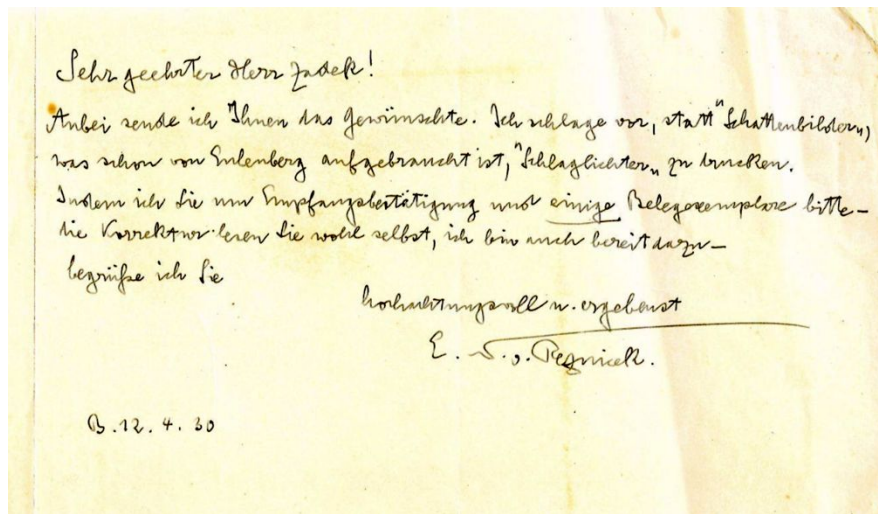 Sehr geehrter Herr Zadek!
Anbei sende ich Ihnen das Gewünschte. Ich schlage vor, statt "Schattenbildern",
was schon von Eulenberg aufgebraucht ist, "Schlaglichter" zu drucken.
Indem ich Sie um Empfangsbestätigung und einige Belegexemplare bitte –
die Korrektur lesen Sie wohl selbst, ich bin auch bereit dazu –
begrüße ich Sie
hochachtungsvoll u. ergebenst
E. N. v. Reznicek.
B. 12. 4. 30